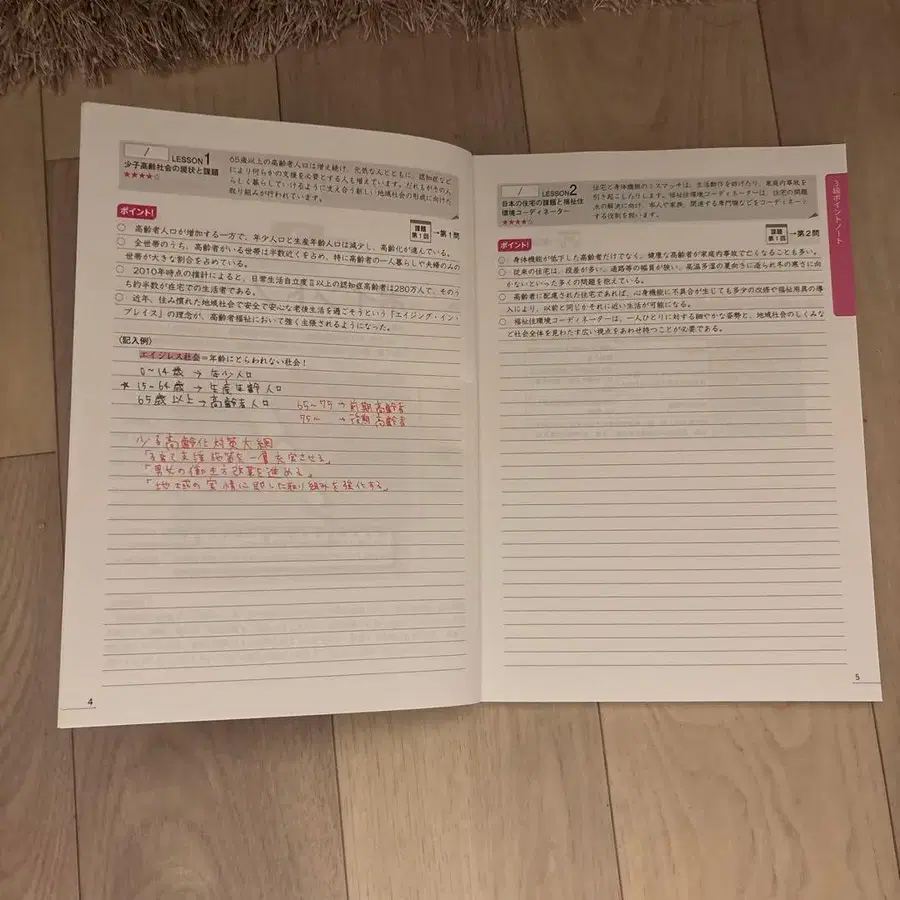 /
LESSON1
少子高齢社会の現状と課題
★★★★☆
65歳以上の高齢者人口は増え続け、元気な人とともに、認知症など
により何らかの支援を必要とする人も増えています。だれもがその人
らしく暮らしていけるように支え合う新しい地域社会の形成に向けた
取り組みが行われています。
ポイント!
課題
第1回
→第1問
○ 高齢者人口が増加する一方で、年少人口と生産年齢人口は減少し、高齢化が進んでいる。
○ 全世帯のうち、高齢者がいる世帯は半数近くを占め、特に高齢者の一人暮らしや夫婦のみの
世帯が大きな割合を占めている。
○ 2010年時点の推計によると、日常生活自立度Ⅱ以上の認知症高齢者は280万人で、そのう
ち約半数が在宅での生活者である。
○ 近年、住み慣れた地域社会で安全で安心な老後生活を過ごそうという「エイジング・イン・
プレイス」の理念が、高齢者福祉において強く主張されるようになった。
〈記入例〉
エイジレス社会=年齢にとらわれない社会!
0〜14歳 → 年少人口
* 15〜64歳 → 生産年齢人口
65歳以上 → 高齢者人口
65〜75 → 前期高齢者
75〜 → 後期高齢者
少子高齢化対策大綱
「子育て支援施策を一層充実させる」
「男女の働き方改革を進める」
「地域の実情に即した取り組みを強化する」
4
/
LESSON2
日本の住宅の課題と福祉住
環境コーディネーター
★★★★☆
住宅と身体機能のミスマッチは、生活動作を妨げたり、家庭内事故を
引き起こしたりします。福祉住環境コーディネーターは、住宅の問題
点の解決に向け、本人や家族、関連する専門職などをコーディネート
する役割を担います。
ポイント!
課題
第1回
→第2問
○ 身体機能が低下した高齢者だけでなく、健康な高齢者が家庭内事故で亡くなることも多い。
○ 従来の住宅は、段差が多い、通路等の幅員が狭い、高温多湿の夏向きに造られ冬の寒さに向
かないといった多くの問題を抱えている。
○ 高齢者に配慮された住宅であれば、心身機能に不具合が生じても多少の改修や福祉用具の導
入により、以前と同じかそれに近い生活が可能になる。
○ 福祉住環境コーディネーターは、一人ひとりに対する細やかな姿勢と、地域社会のしくみな
ど社会全体を見わたす広い視点をあわせ持つことが必要である。
3級ポイントノート
5